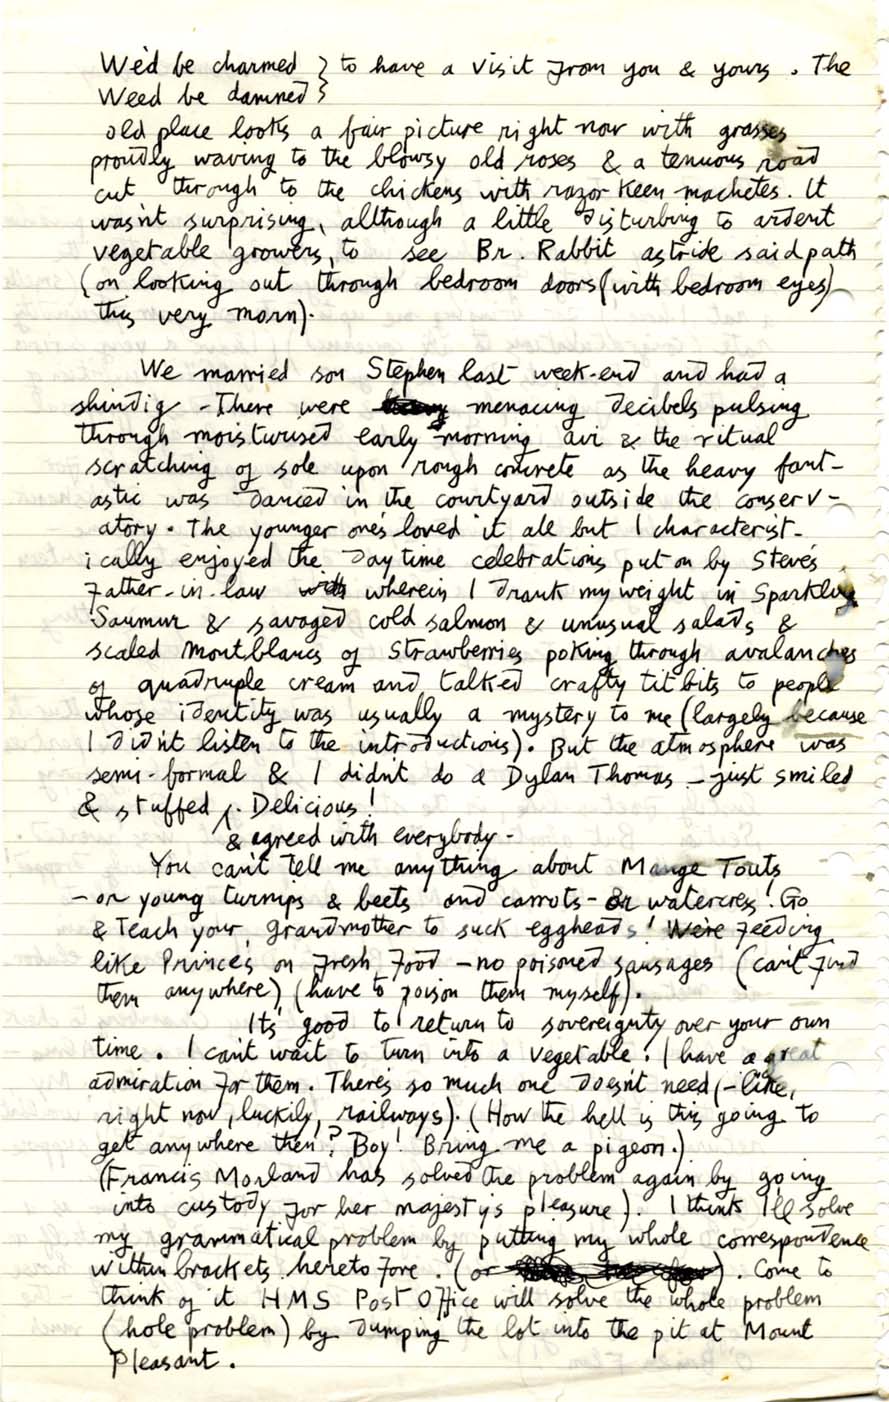 We'd be charmed } to have a visit from you & yours. The
Weed be damned }
old place looks a fair picture right now with grasses
proudly waving to the blowsy old roses & a tenuous road
cut through to the chickens with razor keen machetes. It
wasn't surprising, although a little disturbing to ardent
vegetable growers, to see Br. Rabbit astride said path
(on looking out through bedroom doors (with bedroom eyes)
this very morn).
We married son Stephen last week-end and had a
shindig - There were menacing decibels pulsing
through moisturised early morning air & the ritual
scratching of sole upon rough concrete as the heavy fant-
astic was danced in the courtyard outside the conserv-
atory. The younger one's loved it all but I characterist-
ically enjoyed the daytime celebrations put on by Steve's
Father-in-law wherein I drank my weight in Sparkling
Saumur & savaged cold salmon & unusual salads &
scaled Montblancs of Strawberries poking through avalanches
of quadruple cream and talked crafty titbits to people
whose identity was usually a mystery to me (largely because
I didn't listen to the introductions). But the atmosphere was
semi-formal & I didn't do a Dylan Thomas - just smiled
& stuffed. Delicious!
& agreed with everybody -
You can't tell me anything about Mange Touts
- or young turnips & beets and carrots - Or watercress! Go
& Teach your grandmother to suck eggheads! We're feeding
like Prince's on fresh food - no poisoned sausages (can't find
them anywhere) (have to poison them myself).
It's good to return to sovereignty over your own
time. I can't wait to turn into a vegetable. I have a great
admiration for them. There's so much one doesn't need (- like,
right now, luckily, railways). (How the hell is this going to
get anywhere then? Boy! Bring me a pigeon.)
(Francis Morland has solved the problem again by going
into custody for her majesty's pleasure). I think I'll solve
my grammatical problem by putting my whole correspondence
within brackets heretofore. (or ). Come to
think of it HMS Post Office will solve the whole problem
(hole problem) by dumping the lot into the pit at Mount
Pleasant.